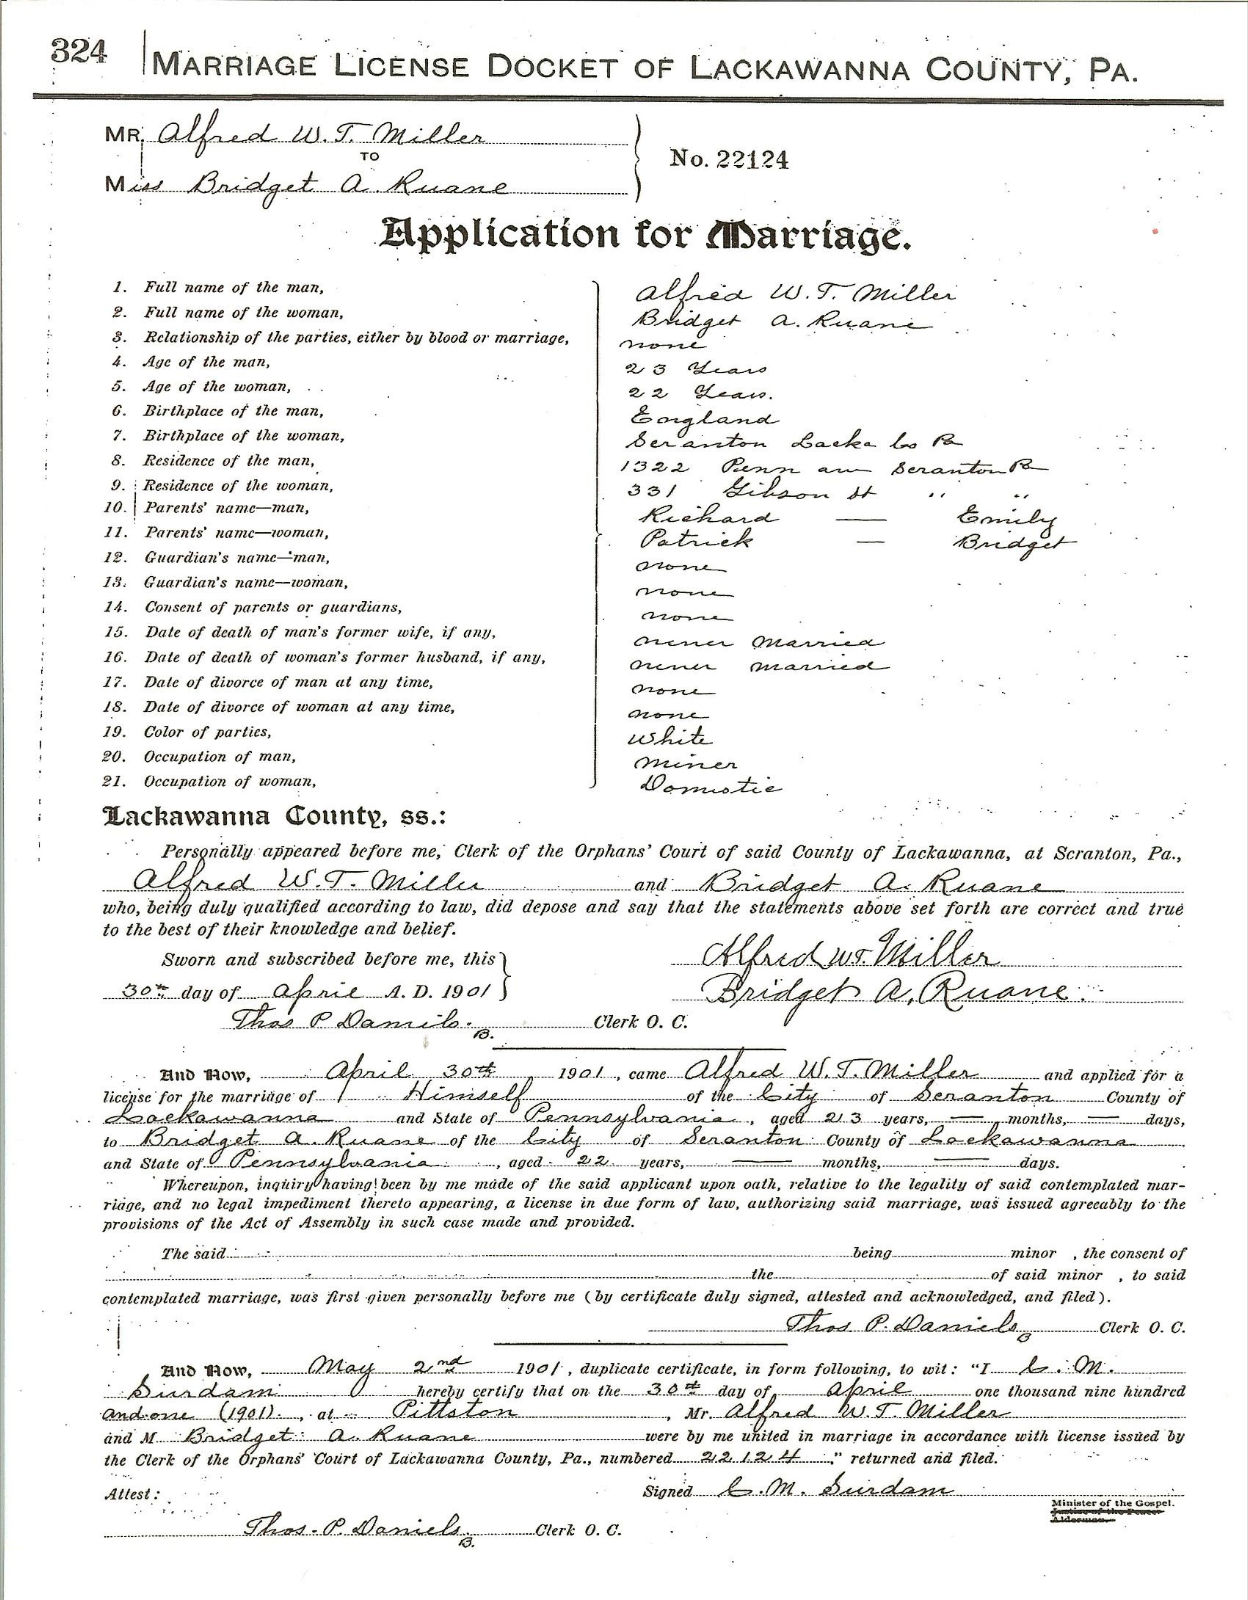 324 MARRIAGE LICENSE DOCKET OF LACKAWANNA COUNTY, PA.
MR. Alfred W. T. Miller
TO
No. 22124
Miss Bridget A. Ruane
Application for Marriage.
1. Full name of the man, Alfred W. T. Miller
2. Full name of the woman, Bridget A. Ruane
3. Relationship of the parties, either by blood or marriage, none
4. Age of the man, 23 Years
5. Age of the woman, 22 Years.
6. Birthplace of the man, England
7. Birthplace of the woman, Scranton Lacka Co Pa
8. Residence of the man, 1322 Penn ave Scranton Pa
9. Residence of the woman, 331 Gibson St " "
10. Parents' name—man, Richard — Emily
11. Parents' name—woman, Patrick — Bridget
12. Guardian's name—man, none
13. Guardian's name—woman, none
14. Consent of parents or guardians, none
15. Date of death of man's former wife, if any, never married
16. Date of death of woman's former husband, if any, never married
17. Date of divorce of man at any time, none
18. Date of divorce of woman at any time, none
19. Color of parties, White
20. Occupation of man, Miner
21. Occupation of woman, Domestic
Lackawanna County, ss.:
Personally appeared before me, Clerk of the Orphans' Court of said County of Lackawanna, at Scranton, Pa.,
Alfred W. T. Miller and Bridget A. Ruane
who, being duly qualified according to law, did depose and say that the statements above set forth are correct and true
to the best of their knowledge and belief.
Sworn and subscribed before me, this Alfred W. T. Miller
30th day of April A. D. 1901 Bridget A. Ruane
Thos P Daniels. B. Clerk O. C.
And Now, April 30th 1901, came Alfred W. T. Miller and applied for a
license for the marriage of Himself of the City of Scranton County of
Lackawanna and State of Pennsylvania, aged 23 years, — months, — days,
to Bridget A. Ruane of the City of Scranton County of Lackawanna
and State of Pennsylvania, aged 22 years, — months, — days.
Whereupon, inquiry having been by me made of the said applicant upon oath, relative to the legality of said contemplated mar-
riage, and no legal impediment thereto appearing, a license in due form of law, authorizing said marriage, was issued agreeably to the
provisions of the Act of Assembly in such case made and provided.
The said being minor , the consent of
the of said minor , to said
contemplated marriage, was first given personally before me (by certificate duly signed, attested and acknowledged, and filed).
Thos P. Daniels B Clerk O. C.
And Now, May 2nd 1901, duplicate certificate, in form following, to wit: "I C. M.
Surdam hereby certify that on the 30th day of April one thousand nine hundred
and one (1901), at Pittston, Mr. Alfred W. T. Miller
and M Bridget A. Ruane were by me united in marriage in accordance with license issued by
the Clerk of the Orphans' Court of Lackawanna County, Pa., numbered 22124," returned and filed.
Attest: Signed C. M. Surdam
Minister of the Gospel.
Justice of the Peace
Alderman.
Thos. P. Daniels B. Clerk O. C.